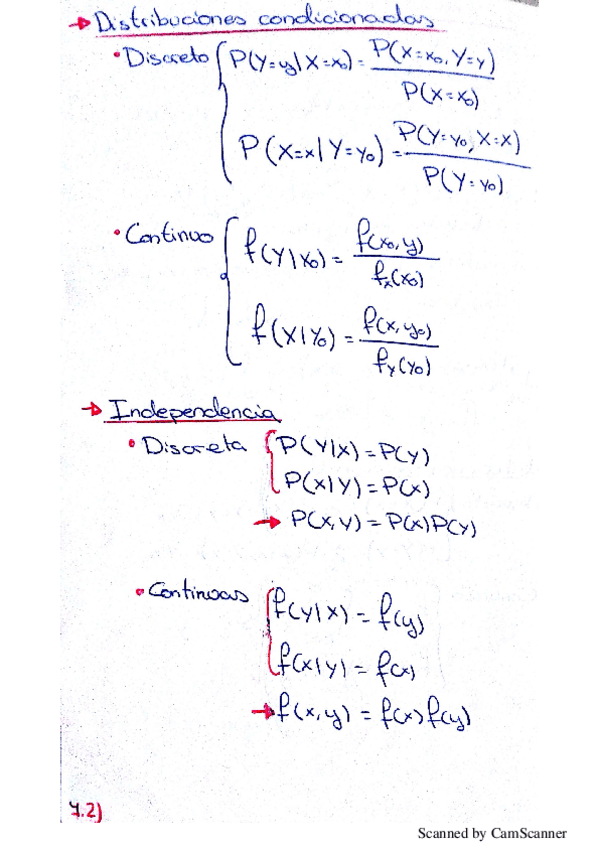 → Distribuciones condicionadas
• Discreto { P(Y=y|X=x₀) = P(X=x₀, Y=y) / P(X=x₀)
P(X=x|Y=y₀) = P(Y=y₀, X=x) / P(Y=y₀)
• Continuo { f(y|x₀) = f(x₀,y) / fₓ(x₀)
f(x|y₀) = f(x,y₀) / f_Y(y₀)
→ Independencia
• Discreta { P(Y|X) = P(Y)
P(X|Y) = P(X)
→ P(X,Y) = P(X)P(Y)
• Continuas { f(y|x) = f(y)
f(x|y) = f(x)
→ f(x,y) = f(x)f(y)
4.2)
Scanned by CamScanner